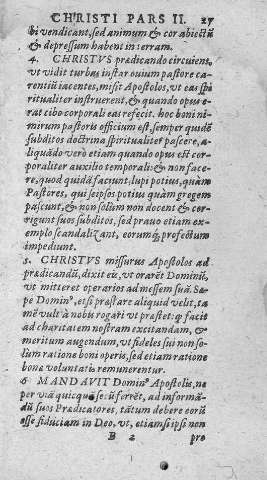 CHRISTI PARS II. 27
bi vendicant, sed animum & cor abiectũ
& depressum habent in terram.
4. CHRISTVS prædicando circuiens,
vt vidit turbas instar ouium pastore ca-
rentiũ iacentes, misit Apostolos, vt eas spi
ritualiter instruerent, & quando opus e-
rat cibo corporali eas refecit. hoc boni ni-
mirum pastoris officium est, semper quidẽ
subditos doctrina spiritualiter pascere, a-
liquãdo verò etiam quando opus est cor-
poraliter auxilio temporali: & non face-
re, quod quidã faciunt, lupi potius, quàm
Pastores, qui seipsos potius quàm gregem
pascunt, & non solùm non docent & cor-
rigunt suos subditos, sed prauo etiam ex-
emplo scandalizant, eorumq́; profectum
impediunt.
5. CHRISTVS missurus Apostolos ad
prædicandũ, dixit eis, vt orarẽt Dominũ,
vt mitteret operarios ad messem suã. Sæ-
pe Domin⁹, etsi præstare aliquid velit, ta-
mẽ vult à nobis rogari vt præstet: q̃ facit
ad charitatem nostram excitandam, &
meritum augendum, vt fideles sui non so-
lùm ratione boni operis, sed etiam ratione
bonæ voluntatis remunerentur.
6 MANDAVIT Domin⁹ Apostolis, ne
per viã quicquã secũ ferrẽt, ad informã-
dũ suos Prædicatores, tãtum debere eorũ
esse fiduciam in Deo, vt, etiamsi ipsi non
B 2 pro